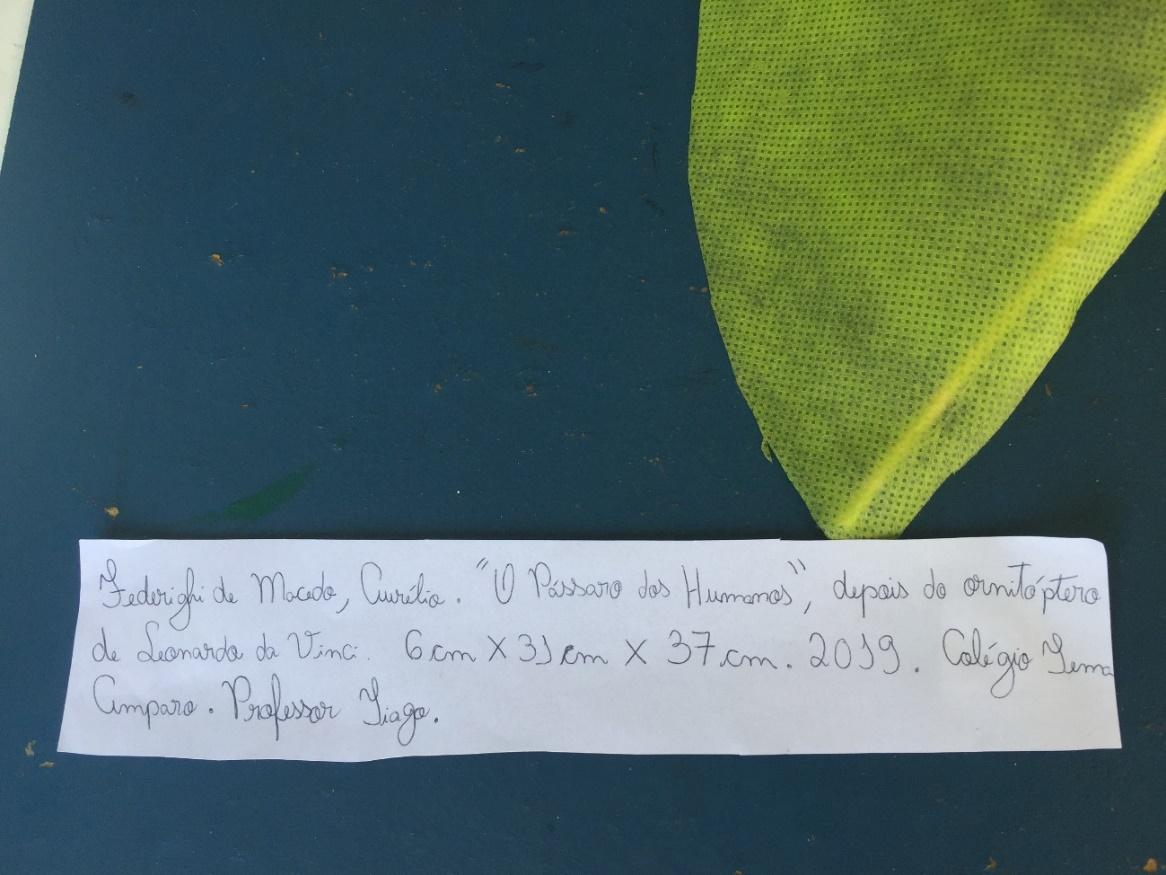 Federighi de Macedo, Aurélio. "O Pássaro dos Humanos", depois do ornitóptero
de Leonardo da Vinci. 6 cm X 31 cm X 37 cm. 2019. Colégio Tema
Amparo. Professor Tiago.